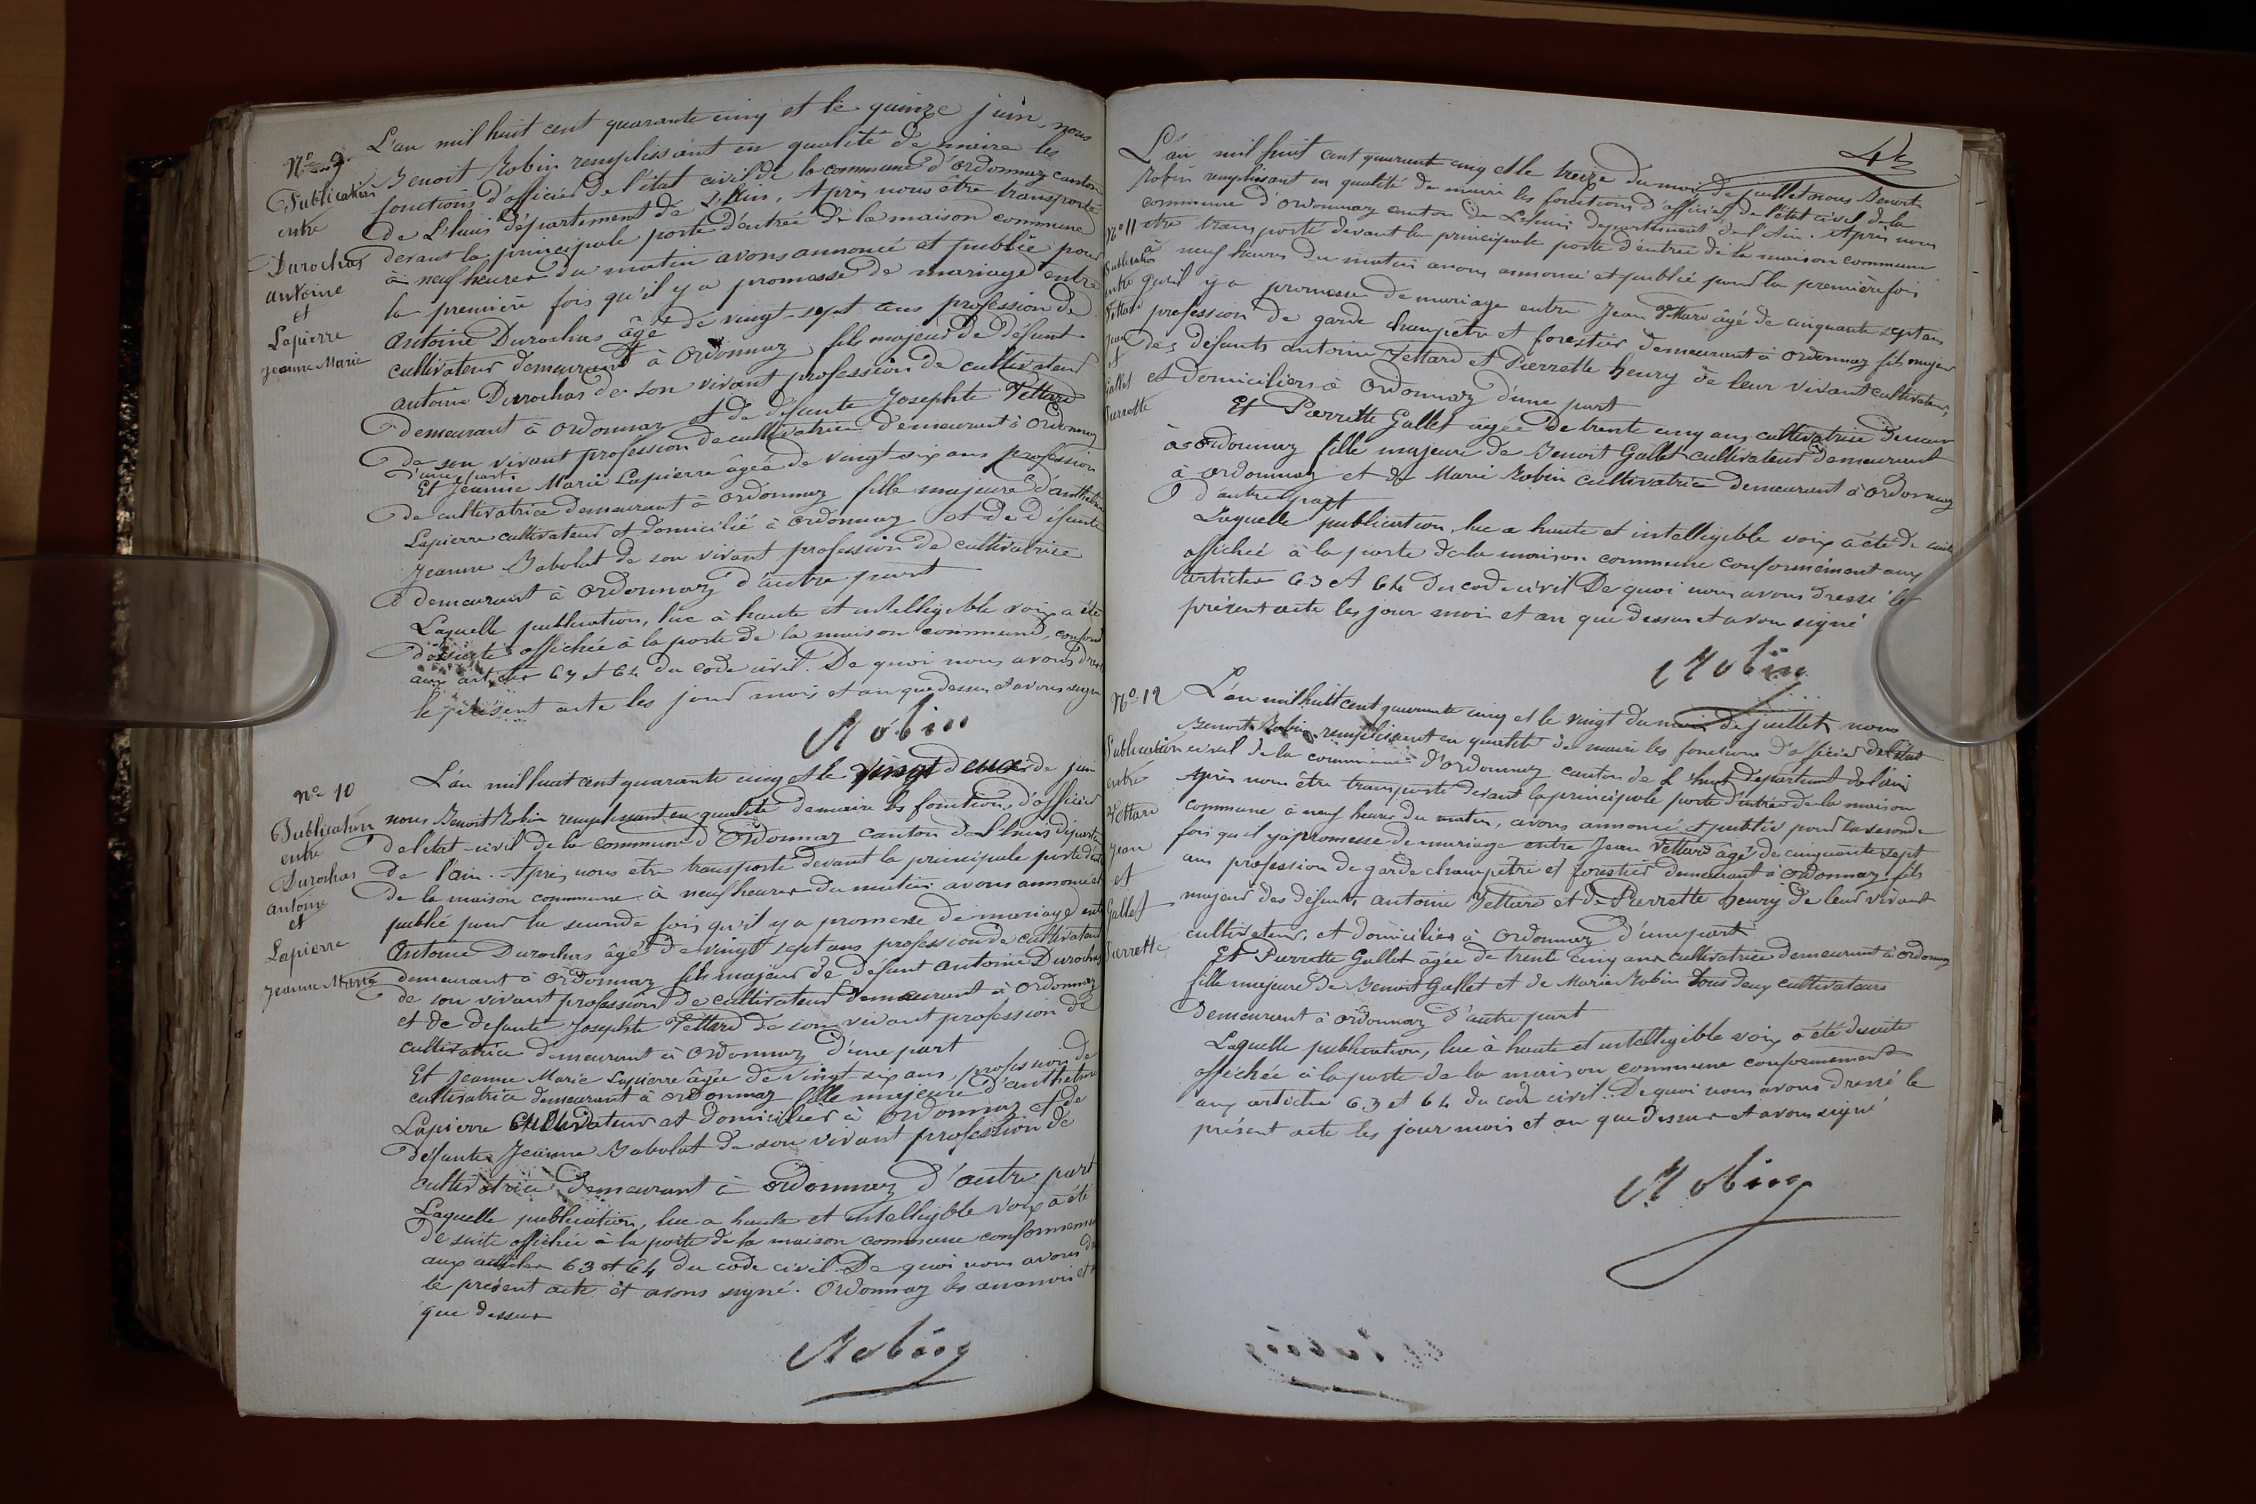 N° 9.
Publication
entre
Durochas
antoine
et
Lapierre
jeanne Marie
L'an mil huit cent quarante cinq et le quinze juin, nous
Benoit Robin remplissant en qualité de maire les
fonctions d'officier de l'état civil de la commune d'ordonnaz canton
de Lhuis département de L'Ain. Après nous être transporté
devant la principale porte d'entrée de la maison commune
à neuf heures du matin avons annoncé et publié pour
la première fois qu'il y a promesse de mariage entre
antoine Durochas âgé de vingt-sept ans profession de
cultivateur demeurant à Ordonnaz, fils majeur de défunt
antoine Durochas de son vivant profession de cultivateur
demeurant à ordonnaz et de défunte Josephte Vettard
de son vivant profession de cultivatrice demeurant à Ordonnaz
d'une part
Et Jeanne Marie Lapierre âgée de vingt six ans profession
de cultivatrice demeurant à ordonnaz fille majeure d'anthelme
Lapierre cultivateur et domicilié à ordonnaz et de défunte
Jeanne Babolat de son vivant profession de cultivatrice
demeurant à Ordonnaz d'autre part
Laquelle publication, lue à haute et intelligible voix a été
de suite affichée à la porte de la maison commune, conform
aux articles 63 et 64 du code civil. De quoi nous avons dres
le présent acte les jour mois et an que dessus et avons signé
Robin
N° 10
Publication
entre
Durochas
antoine
et
Lapierre
jeanne Marie
L'an mil huit cent quarante cinq et le vingt deux de juin
nous Benoit Robin remplissant en qualité de maire les fonctions d'officier
de l'etat-civil de la commune d'Ordonnaz canton de Lhuis départe
de l'ain. Après nous être transporté devant la principale porte d'ent
de la maison commune à neuf heures du matin avons annoncé et
publié pour la seconde fois qu'il y a promesse de mariage entr
Antoine Durochas âgé de vingt sept ans profession de cultivateur
demeurant à ordonnaz fils majeur de défunt antoine Durochas
de son vivant profession de cultivateur demeurant à ordonnaz
et de defunte Josephte Vettard de son vivant profession de
cultivatrice demeurant à Ordonnaz d'une part
Et Jeanne Marie Lapierre âgée de vingt six ans, profession de
cultivatrice demeurant à ordonnaz fille majeure d'anthelme
Lapierre cultivateur et domicilier à Ordonnaz et de
défunte Jeanne Babolat de son vivant profession de
cultivatrice demeurant à ordonnaz d'autre part
Laquelle publication, lue a haute et intelligible voix a été
de suite affichée à la porte de la maison commune conformem
aux articles 63 et 64 du code civil De quoi nous avons dr
le présent acte et avons signé. Ordonnaz les an mois et
que dessus
Robin
N° 11
Publication
entre
Vettard
Jean
et
Gallet
Pierrette
L'an mil huit cent quarante cinq et le treize du mois de juillet nous Benoit
Robin remplissant en qualité de maire les fonctions d'officier de l'état civil de la
commune d'ordonnaz canton de Lhuis département de l'Ain. Après nous
etre transporté devant la principale porte d'entrée de la maison commune
à neuf heures du matin avons annoncé et publié pour la première fois
qu'il y a promesse de mariage entre Jean Vettard âgé de cinquante sept ans
profession de garde champêtre et forestier demeurant à ordonnaz fils majeur
des défunts antoine Vettard et Pierrette henry de leur vivant cultivateurs,
et domiciliers à Ordonnaz d'une part
Et Pierrette Gallet agée de trente cinq ans cultivatrice demeur
à ordonnaz fille majeure de Benoit Gallet cultivateur demeurant
à ordonnaz et de Marie Robin cultivatrice demeurant à ordonnaz
d'autre part
Laquelle publication, lue a haute et intelligible voix a été de suite
affichée à la porte de la maison commune conformément aux
articles 63 et 64 du code civil De quoi nous avons dressé le
présent acte les jour mois et an que dessus et avons signé
Robin
N° 12
Publication
entre
Vettard
Jean
et
Gallet
Pierrette
L'an mil huit cent quarante cinq et le vingt du mois de juillet nous
Benoit Robin remplissant en qualité de maire les fonctions d'officier de l'état
civil de la commune d'Ordonnaz canton de Lhuis département de l'ain
Après nous être transporté devant la principale porte d'entrée de la maison
commune à neuf heures du matin, avons annoncé et publié pour la seconde
fois qu'il y a promesse de mariage entre Jean Vettard âgé de cinquante sept
ans profession de garde champêtre et forestier demeurant à ordonnaz fils
majeur des défunts antoine Vettard et de Pierrette henry de leur vivant
cultivateurs, et domiciliés à Ordonnaz d'une part
Et Pierrette Gallet âgée de trente cinq ans cultivatrice demeurant à ordonnaz
fille majeure de Benoit Gallet et de Marie Robin tous deux cultivateurs
demeurant à ordonnaz d'autre part
Laquelle publication, lue à haute et intelligible voix a été de suite
affichée à la porte de la maison commune conformement
aux articles 63 et 64 du code civil. De quoi nous avons dressé le
présent acte les jour mois et an que dessus et avons signé
Robin